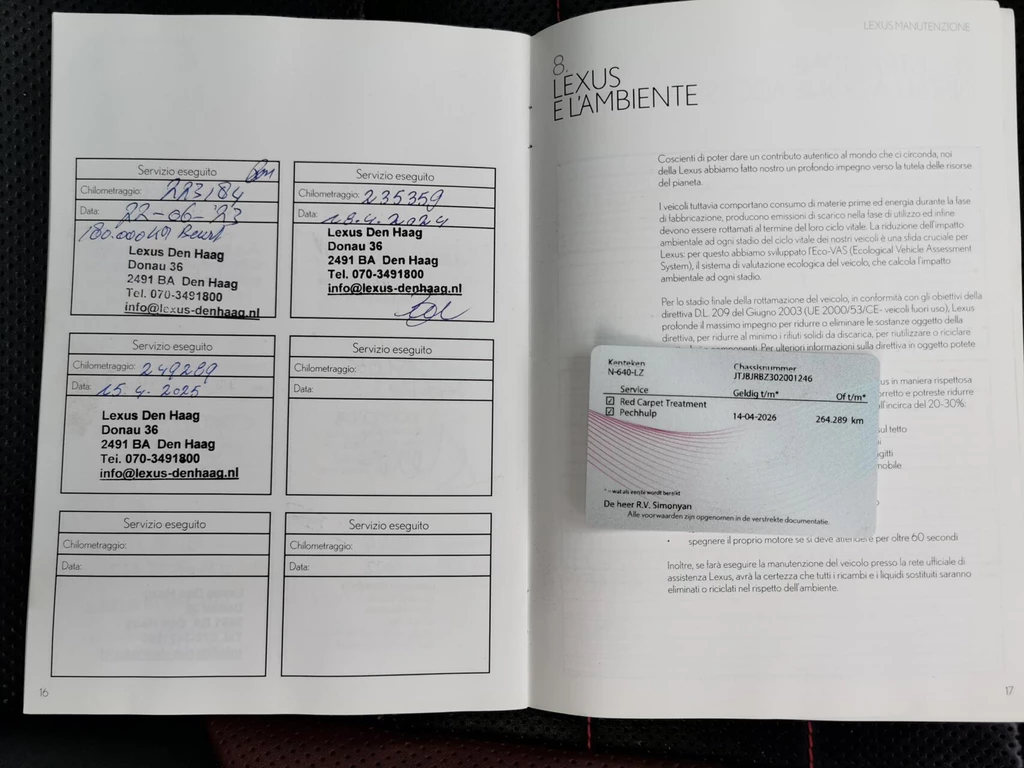 Servizio eseguito
Chilometraggio: 223184
Data: 22-06-'23
180.000KM Beurt
Lexus Den Haag
Donau 36
2491 BA Den Haag
Tel. 070-3491800
info@lexus-denhaag.nl
Servizio eseguito
Chilometraggio: 235359
Data: 18.4.2024
Lexus Den Haag
Donau 36
2491 BA Den Haag
Tel. 070-3491800
info@lexus-denhaag.nl
Servizio eseguito
Chilometraggio: 249289
Data: 15.4.2025
Lexus Den Haag
Donau 36
2491 BA Den Haag
Tel. 070-3491800
info@lexus-denhaag.nl
Servizio eseguito
Chilometraggio:
Data:
Servizio eseguito
Chilometraggio:
Data:
Servizio eseguito
Chilometraggio:
Data:
16
LEXUS MANUTENZIONE
8.
LEXUS
E L'AMBIENTE
Coscienti di poter dare un contributo autentico al mondo che ci circonda, noi
della Lexus abbiamo fatto nostro un profondo impegno verso la tutela delle risorse
del pianeta.
I veicoli tuttavia comportano consumo di materie prime ed energia durante la fase
di fabbricazione, producono emissioni di scarico nella fase di utilizzo ed infine
devono essere rottamati al termine del loro ciclo vitale. La riduzione dell'impatto
ambientale ad ogni stadio del ciclo vitale dei nostri veicoli è una sfida cruciale per
Lexus: per questo abbiamo sviluppato l'Eco-VAS (Ecological Vehicle Assessment
System), il sistema di valutazione ecologica del veicolo, che calcola l'impatto
ambientale ad ogni stadio.
Per lo stadio finale della rottamazione del veicolo, in conformità con gli obiettivi della
direttiva D.L. 209 del Giugno 2003 (UE 2000/53/CE- veicoli fuori uso), Lexus
profonde il massimo impegno per ridurre o eliminare le sostanze oggetto della
direttiva, per ridurre al minimo i rifiuti solidi da discarica, per riutilizzare o riciclare
componenti. Per ulteriori informazioni sulla direttiva in oggetto potete
us in maniera rispettosa
orretto e potreste ridurre
all'incirca del 20-30%:
sul tetto
Kenteken
N-640-LZ
Chassisnummer
JTJBJRBZ302001246
Service
Geldig t/m*
Of t/m*
☑ Red Carpet Treatment
☑ Pechhulp
14-04-2026
264.289 km
* = wat als eerste wordt bereikt
De heer R.V. Simonyan
Alle voorwaarden zijn opgenomen in de verstrekte documentatie.
• spegnere il proprio motore se si deve attendere per oltre 60 secondi
Inoltre, se farà eseguire la manutenzione del veicolo presso la rete ufficiale di
assistenza Lexus, avrà la certezza che tutti i ricambi e i liquidi sostituiti saranno
eliminati o riciclati nel rispetto dell'ambiente.
17